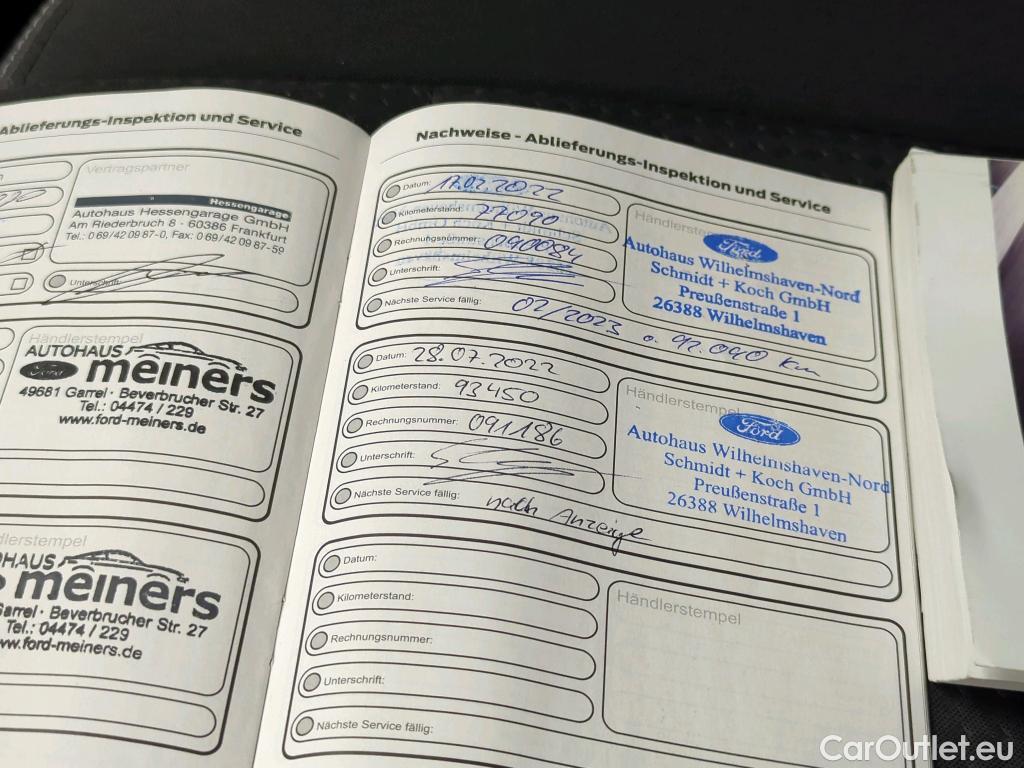 Ablieferungs-Inspektion und Service
Vertragspartner
Hessengarage
Autohaus Hessengarage GmbH
Am Riederbruch 8 · 60386 Frankfurt
Tel.: 0 69/42 09 87-0, Fax: 0 69/42 09 87-59
Unterschrift:
Händlerstempel
AUTOHAUS
Ford meiners
49681 Garrel · Beverbrucher Str. 27
Tel.: 04474 / 229
www.ford-meiners.de
dlerstempel
OHAUS
meiners
Garrel · Beverbrucher Str. 27
Tel.: 04474 / 229
ww.ford-meiners.de
Nachweise - Ablieferungs-Inspektion und Service
Datum: 17.02.2022
Kilometerstand: 77090
Rechnungsnummer: 090084
Unterschrift:
Nächste Service fällig: 02/2023 o. 92.090 Km
Händlerstempel
Ford
Autohaus Wilhelmshaven-Nord
Schmidt + Koch GmbH
Preußenstraße 1
26388 Wilhelmshaven
Datum: 28.07.2022
Kilometerstand: 93450
Rechnungsnummer: 091186
Unterschrift:
Nächste Service fällig: nach Anzeige
Händlerstempel
Ford
Autohaus Wilhelmshaven-Nord
Schmidt + Koch GmbH
Preußenstraße 1
26388 Wilhelmshaven
Datum:
Kilometerstand:
Rechnungsnummer:
Unterschrift:
Nächste Service fällig:
Händlerstempel
CarOutlet.eu